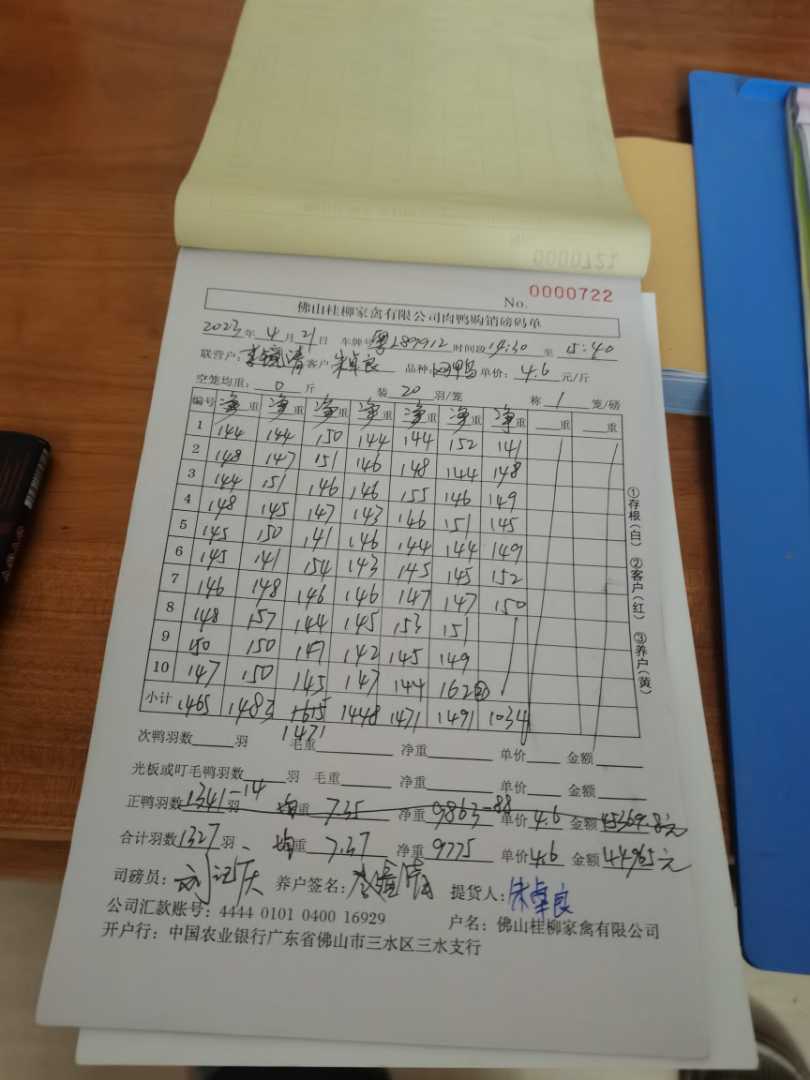 0000721
No. 0000722
佛山桂柳家禽有限公司肉鸭购销磅码单
2023年 4月 21日 车牌号 粤L89912 时间段 14:30 至 15:40
联营户: 客户 朱卓良 品种: 单价: 4.6 元/斤
空笼均重: 0 斤 装 20 羽/笼 称 1 笼/磅
编号 净重 净重 净重 净重 净重 净重 净重 重 重
1 144 144 150 144 144 152 141
2 148 147 151 146 148 144 148
3 144 151 146 146 155 146 149
4 148 145 147 143 146 151 145
5 145 150 141 146 144 144 149
6 145 141 154 143 145 145 152
7 146 148 146 146 147 147 150
8 148 157 144 145 153 151
9 150 150 147 142 145 149
10 147 150 145 147 144 162
小计 1465 1483 1615 1448 1471 1491 1034
1471
次鸭羽数 羽 毛重 净重 单价 金额
光板或叮毛鸭羽数 羽 毛重 净重 单价 金额
正鸭羽数 1341-14 羽 均重 7.35 净重 9863-88 单价 4.6 金额 45369.8元
合计羽数 1327 羽 均重 7.37 净重 9775 单价 4.6 金额 44965元
司磅员: 养户签名: 提货人: 朱卓良
公司汇款账号: 4444 0101 0400 16929 户名: 佛山桂柳家禽有限公司
开户行: 中国农业银行广东省佛山市三水区三水支行
①存根(白) ②客户(红) ③养户(黄)